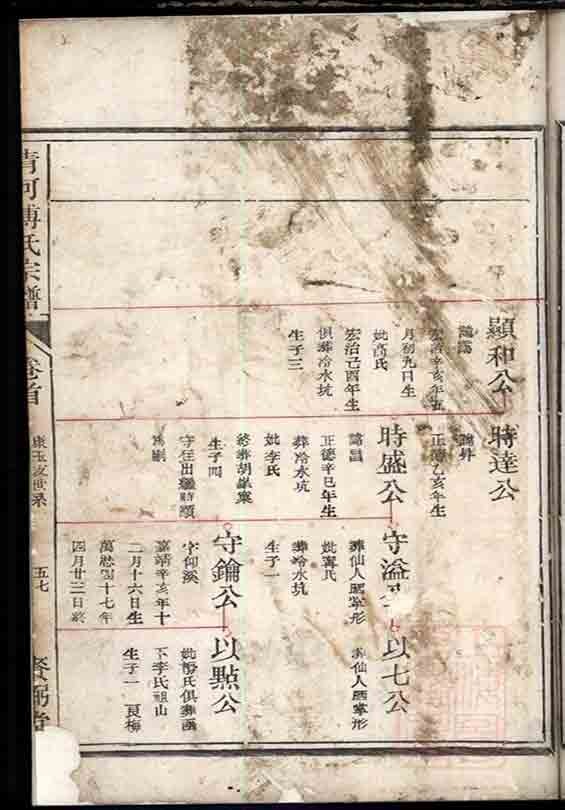 顯和公
宏治辛亥年五
月初九日生
妣高氏
宏治己酉年生
俱葬冷水坑
生子三
時達公
諱昇
正德乙亥年生
時盛公
諱昌
正德辛巳年生
葬冷水坑
妣李氏
終葬胡家
生子四
守任出繼時順
為嗣
守溢
葬仙人晒掌形
葬冷水坑
生子一
守鑰公
字仰溪
嘉靖辛亥年十
二月十六日生
萬歷四十七年
四月廿三日終
以七公
葬仙人晒掌形
以點公
下李氏祖山
生子一 良梅
清河傅氏宗譜
卷首
五七